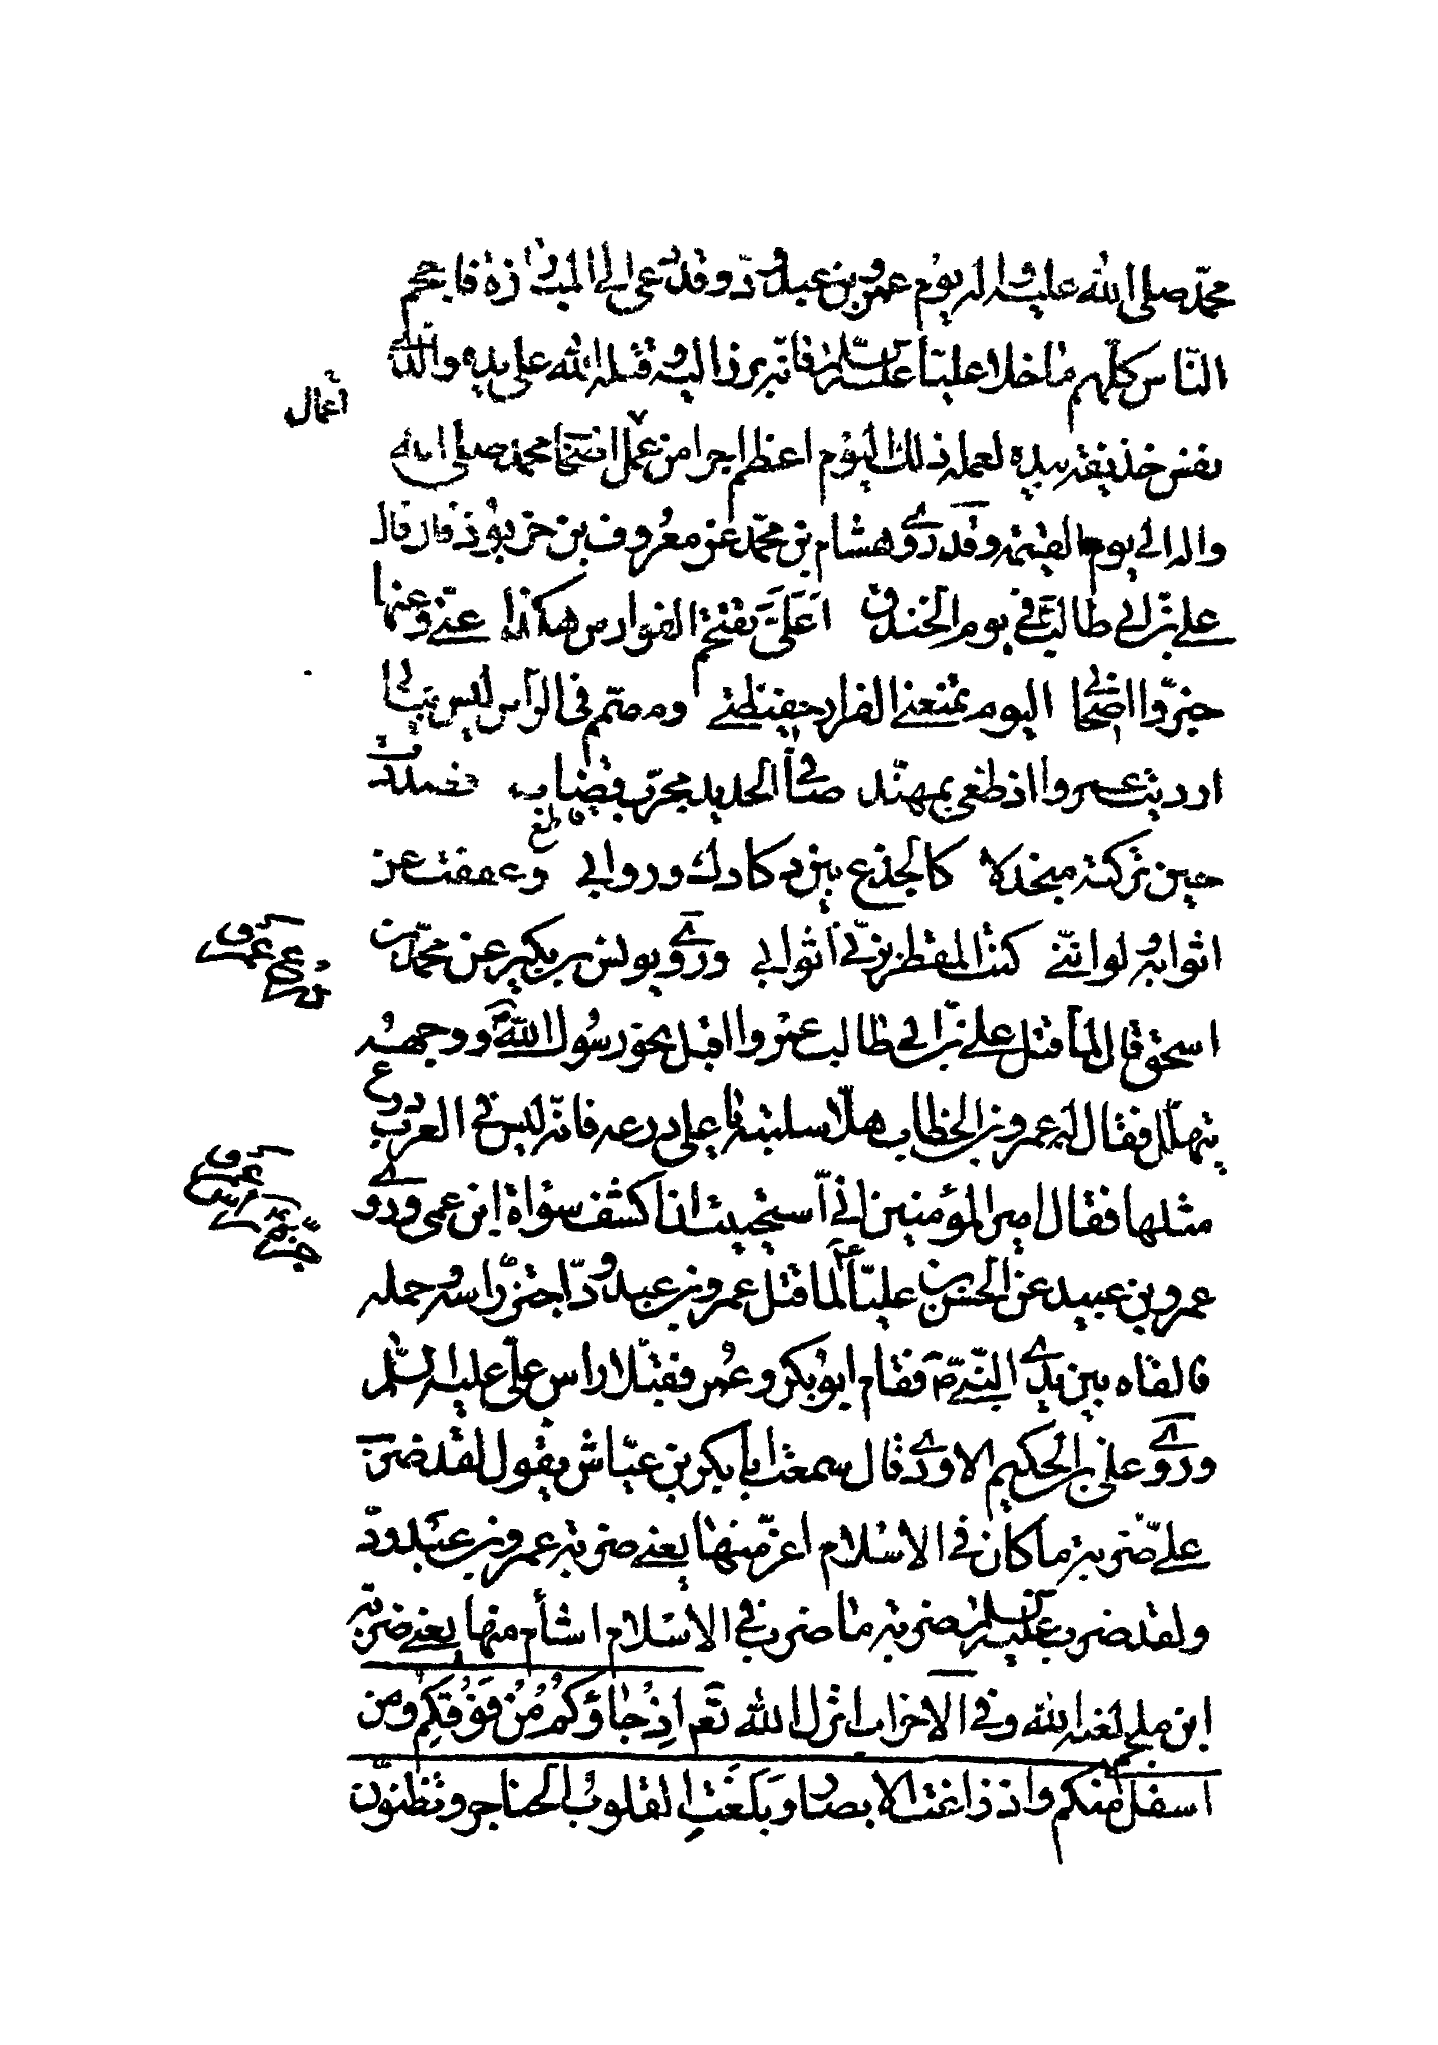 محمّد صلى الله عليه واله يوم عمرو بن عبد ودّ وقد دعى الى المبارزة فاجحم
النّاس كلّهم ما خلا عليّا عليه السلم فانّه برز اليه وقتله الله على يده والّذى
نفس حذيفة بيده لعمله ذلك اليوم اعظم اجرا من عمل اصحاب محمّد صلى الله
اعمال
واله الى يوم القيمة وقد روى هشام بن محمّد عن معروف بن خربوذ قال قال
على بن ابى طالب فى يوم الخندق اعلىّ تقتحم الفوارس هكذا عنّى وعنها
خبّروا اصحابى اليوم يمنعنى الفرار حفيظتى ومصمّم فى الراس ليس بنابى
ارديت عمروا اذ طغى بمهنّد صافى الحديد مجرّب قضاب فصددت
حين تركته متجدلا كالجذع بين دكادك وروابى وعففت عن
اثوابه لو انّنى كنت المقطر بزّنى اثوابى وروى يونس بن بكير عن محمّد بن
اسحق قال لمّا قتل على بن ابى طالب عمروا اقبل نحو رسول الله ص ووجهه
يتهلّل فقال له عمر بن الخطاب هلّا سلبته يا على درعه فانّه ليس فى العرب درع
مثلها فقال امير المؤمنين انّى استحييت ان اكشف سواة ابن عمى وروى
عمرو بن عبيد عن الحسن انّ عليّا لمّا قتل عمرو بن عبد ودّ احتزّ راسه وحمله
فالقاه بين يدى النّبى ص فقام ابو بكر وعمر فقبّلا راس علىّ عليه السّلم
وروى على بن الحكيم الاودى قال سمعت ابا بكر بن عيّاش يقول لقد ضرب
علىّ ضربة ما كان فى الاسلام اعزّ منها يعنى ضربة عمرو بن عبد ودّ
ولقد ضرب عليه السلم ضربة ما ضرب فى الاسلام اشأم منها يعنى ضربة
ابن ملجم لعنه الله وفى الاحزاب انزل الله تعم اذ جاؤكم من فوقكم ومن
اسفل منكم واذ زاغت الابصار وبلغت القلوب الحناجر وتظنّون